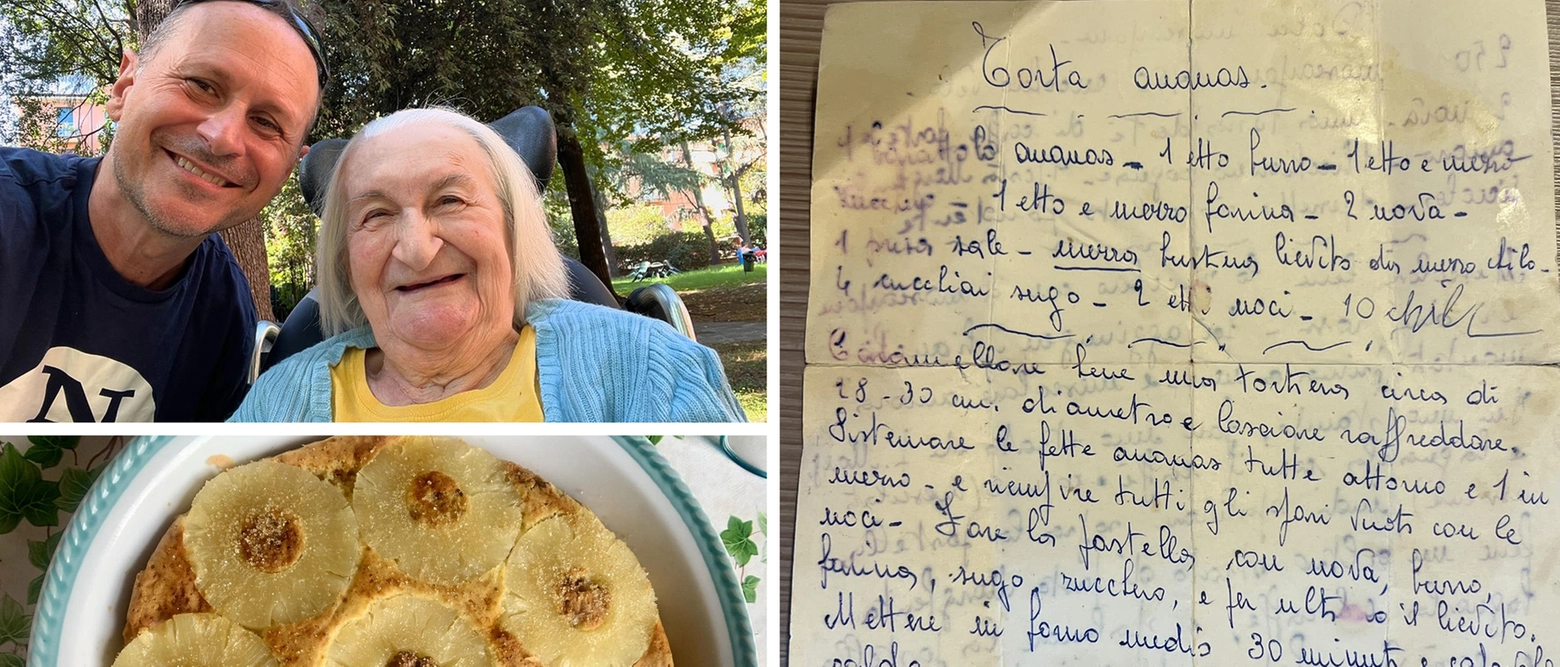 N
Torta ananas.
ananas - 1 etto burro - 1 etto e mezzo
1 etto e mezzo farina - 2 uova -
sale - mezza bustina lievito da mezzo chilo -
4 cucchiai sugo - 2 etti noci - 10
Caramellare bene una tortiera circa di
28 - 30 cm. diametro e lasciare raffreddare.
Sistemare le fette ananas tutte attorno e 1 in
mezzo - e riempire tutti gli spazi vuoti con le
noci - Fare la pastella con uova, burro,
farina, sugo zucchero, e per ultimo il lievito.
Mettere in forno medio 30 minuti e
calda